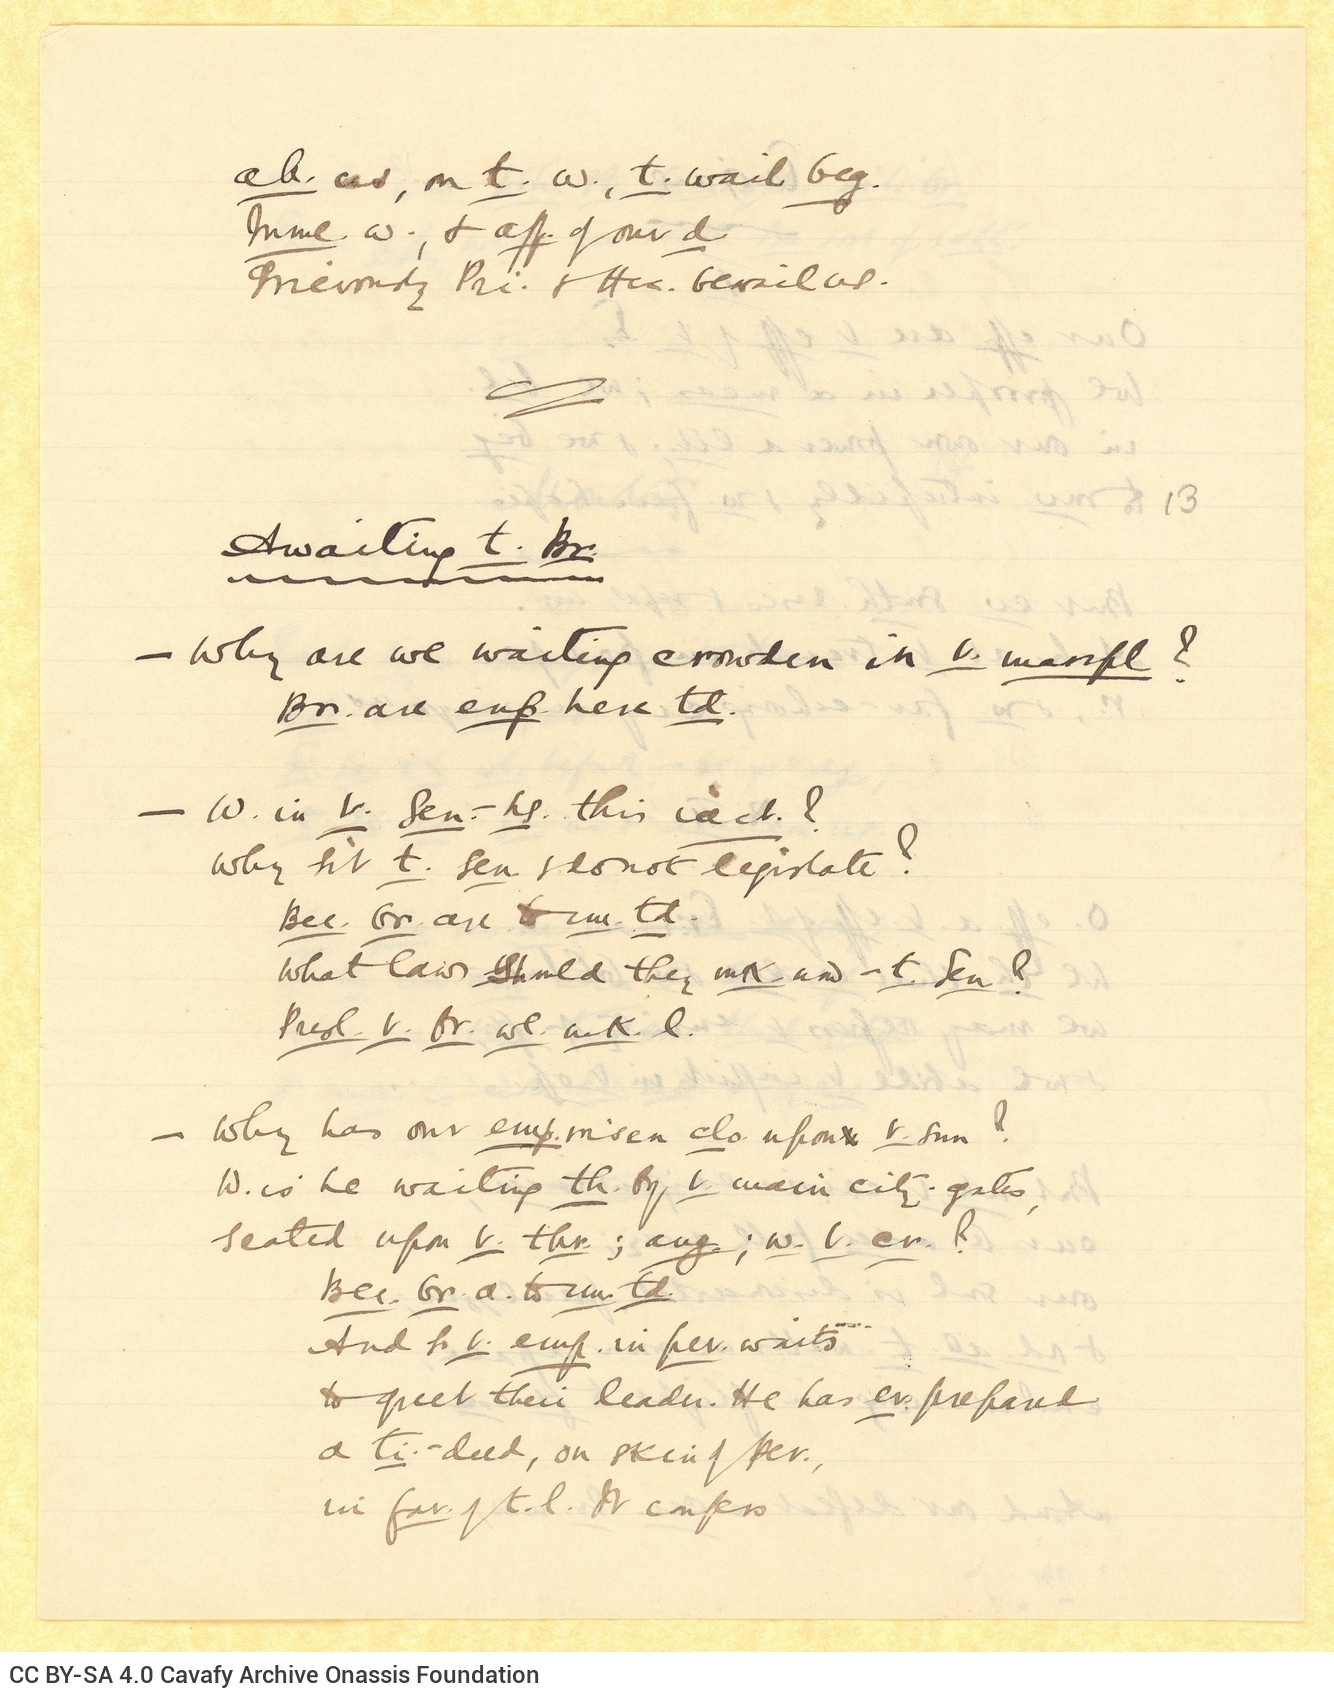 ab. us, on t. w., t. wail beg.
Mme w., & aff. of our d
Grievously Pri. & Hec. bewail us.
13
Awaiting t. Br.
– Why are we waiting crowded in t. marpl?
Br. are exp. here td.
– W. in t. Sen-hs. this inact.?
Why sit t. Sen & do not legislate?
Bec. br. are to cm. td.
What laws should they mk now – t. Sen?
Presl. t. br. wl. mk. l.
– Why has our emp. risen clo upon t. sun?
W. is he waiting th. by t. main city-gates,
seated upon t. thr.; aug.; w. t. cr.?
Bec. br. a. to cm. td.
And so t. emp. in per. waits
to greet their leader. He has ev. prepared
a ti.-deed, on skin of per.,
in fav. of t. l. It confers
CC BY-SA 4.0 Cavafy Archive Onassis Foundation